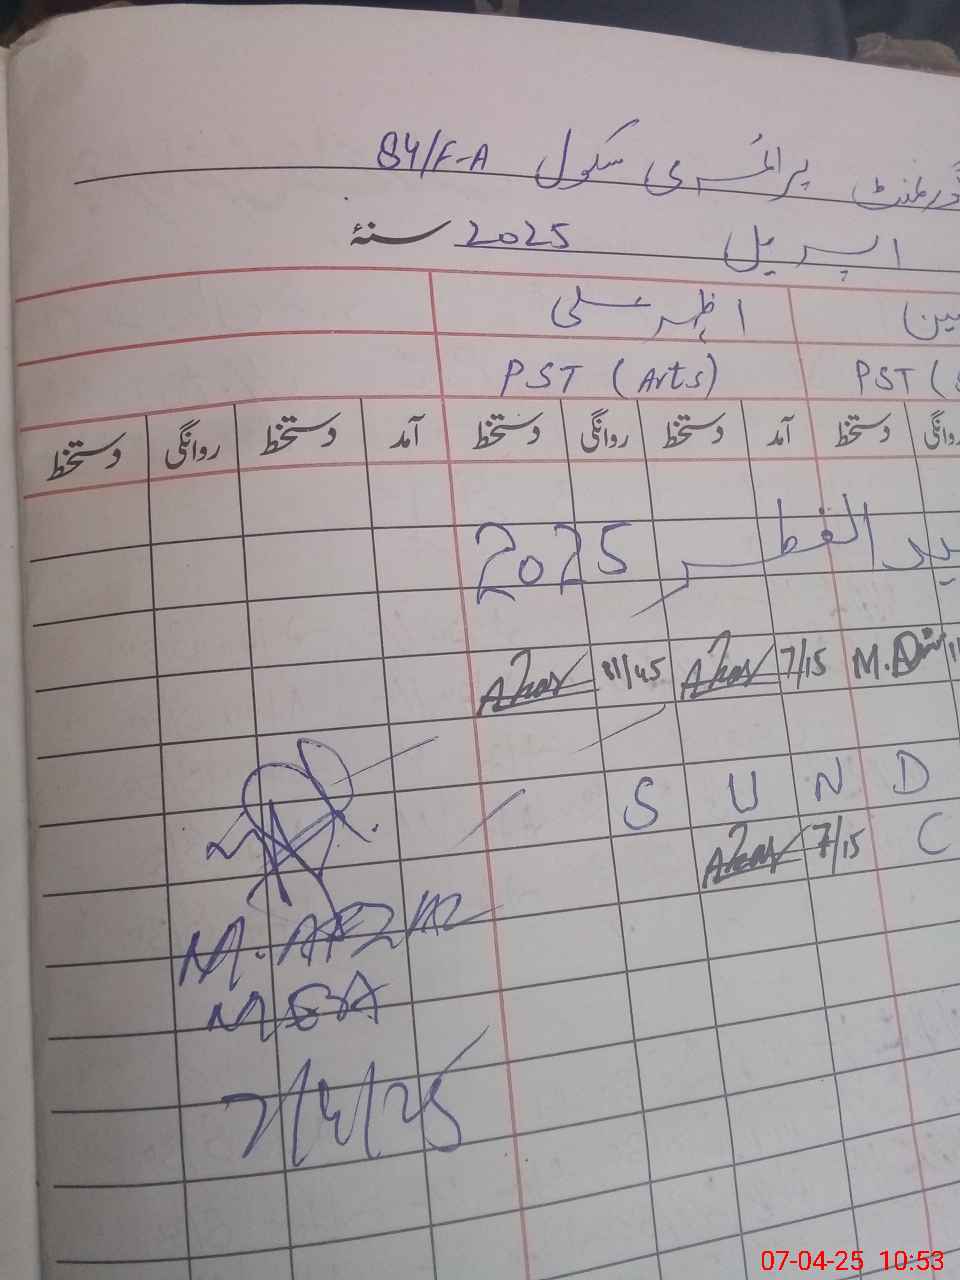 گورنمنٹ پرائمری سکول 84/F-A
اپریل 2025 سنۂ
اظہر علی
PST (Arts) PST (
آمد دستخط روانگی دستخط آمد دستخط روانگی دستخط
الفطر 2025
M. A 7/15 Azhar Azhar
S U N D
7/15 Azhar
M. AFZAL
MEA
7/4/25
07-04-25 10:53